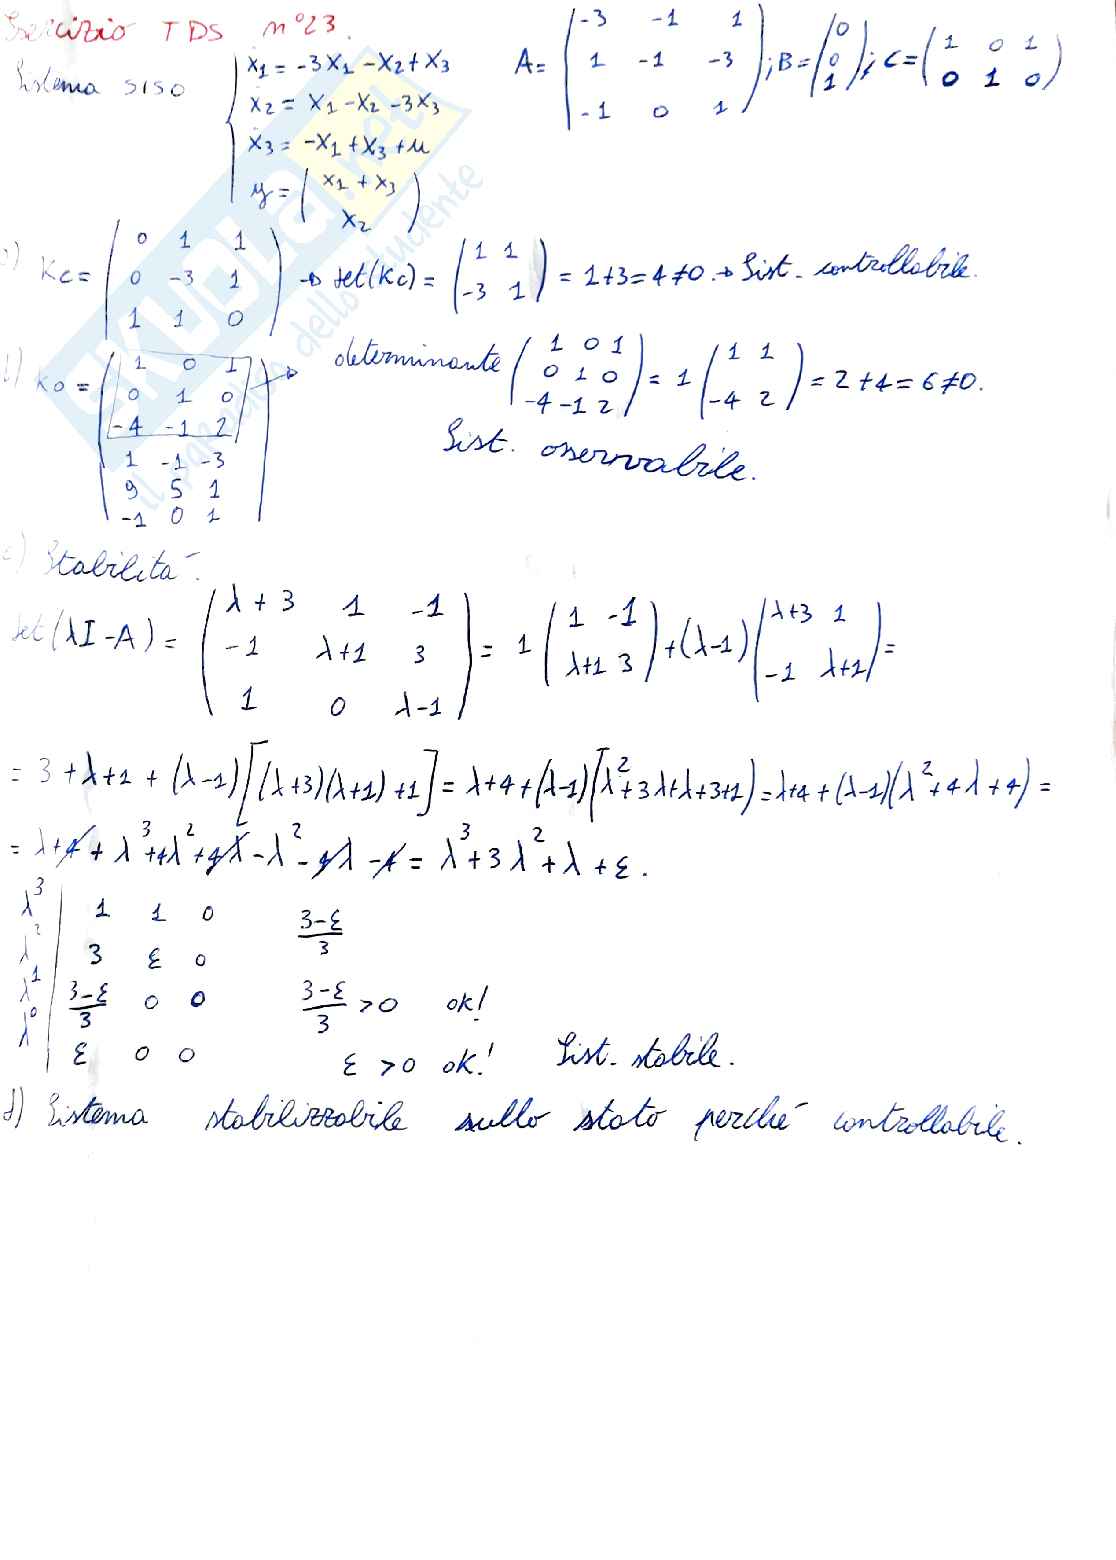 Esercizio TDS n°23.
Sistema SISO
ẋ1 = -3x1 - x2 + x3
ẋ2 = x1 - x2 - 3x3
ẋ3 = -x1 + x3 + u
y = ( x1 + x3
x2 )
A = ( -3 -1 1
1 -1 -3
-1 0 1 ) ; B = ( 0
0
1 ) ; C = ( 1 0 1
0 1 0 )
a) Kc = ( 0 1 1
0 -3 1
1 1 0 ) → det(Kc) = ( 1 1
-3 1 ) = 1+3 = 4 ≠ 0 → Sist. controllabile.
b) Ko = ( 1 0 1
0 1 0
-4 -1 2
1 -1 -3
9 5 1
-1 0 1 )
→ determinante ( 1 0 1
0 1 0
-4 -1 2 ) = 1 ( 1 1
-4 2 ) = 2+4 = 6 ≠ 0.
Sist. osservabile.
c) Stabilità.
det(λI - A) = ( λ+3 1 -1
-1 λ+1 3
1 0 λ-1 ) = 1 ( 1 -1
λ+1 3 ) + (λ-1) ( λ+3 1
-1 λ+1 ) =
= 3 + λ+1 + (λ-1)[(λ+3)(λ+1)+1] = λ+4+(λ-1)(λ²+3λ+λ+3+1) = λ+4+(λ-1)(λ²+4λ+4) =
= λ+4+λ³+4λ²+4λ-λ²-4λ-4 = λ³+3λ²+λ+ε.
λ³ | 1 1 0 (3-ε)/3
λ² | 3 ε 0
λ¹ | (3-ε)/3 0 0 (3-ε)/3 > 0 ok!
λ⁰ | ε 0 0 ε > 0 ok! Sist. stabile.
d) Sistema stabilizzabile sullo stato perché controllabile.
SKUOLA.net
il paradiso dello studente